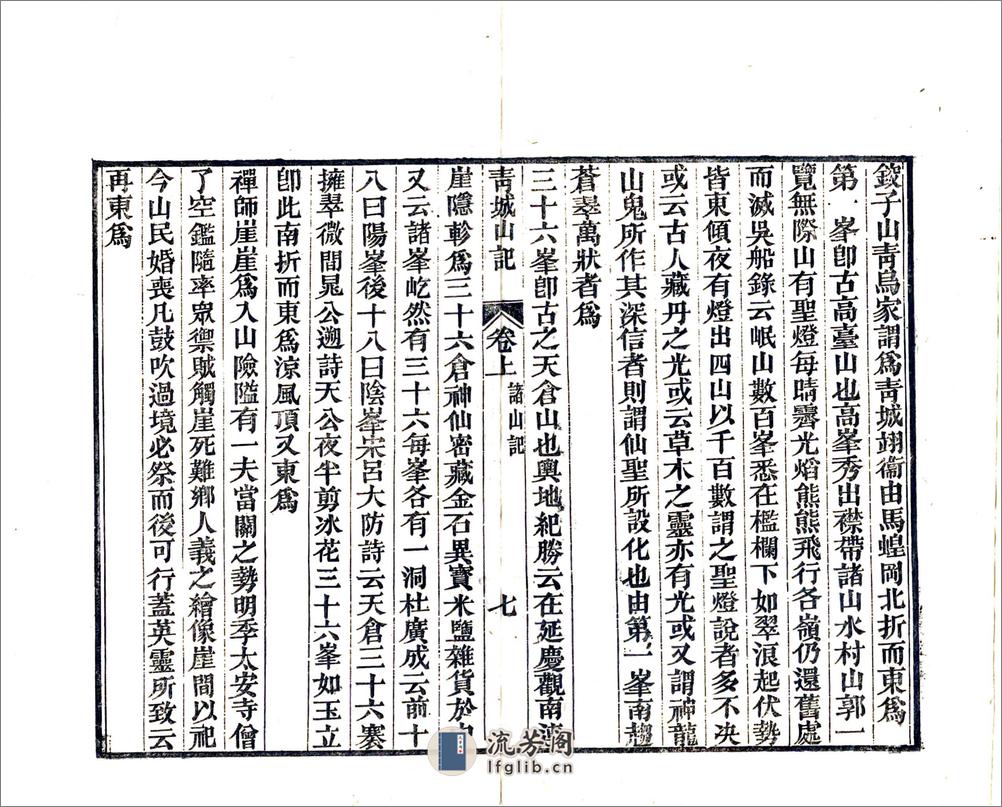 釵子山靑烏家謂爲靑城翊衞由馬蝗岡北折而東爲
第一峯卽古高臺山也高峯秀出襟帶諸山水村山郭一
覽無際山有聖燈每晴霽光熖熊熊飛行各嶺仍還舊處
而滅吳船錄云岷山數百峯悉在檻欄下如翠浪起伏勢
皆東傾夜有燈出四山以千百數謂之聖燈說者多不决
或云古人藏丹之光或云草木之靈亦有光或又謂神龍
山鬼所作其深信者則謂仙聖所設化也由第一峯南趨
蒼翠萬狀者爲
靑城山記 卷上 諸山記 七
三十六峯卽古之天倉山也輿地紀勝云在延慶觀南
崖隱軫爲三十六倉神仙密藏金石異寶米鹽雜貨於
又云諸峯屹然有三十六每峯各有一洞杜廣成云前十
八曰陽峯後十八曰陰峯宋呂大防詩云天倉三十六寨
擁翠微間晁公遡詩天公夜半剪冰花三十六峯如玉立
卽此南折而東爲涼風頂又東爲
禪師崖崖爲入山險隘有一夫當關之勢明季太安寺僧
了空鑑隨率衆禦賊觸崖死難鄉人義之繪像崖間以祀
今山民婚喪凡鼓吹過境必祭而後可行蓋英靈所致云
再東爲
流芳阁
lfglib.cn